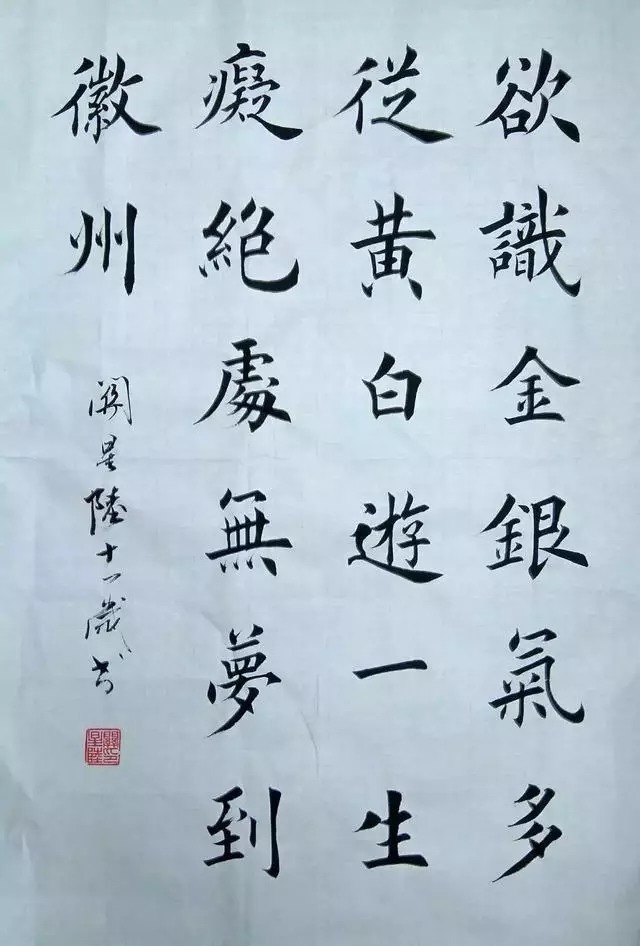 欲識金銀氣多
從黄白遊一生
癡絕處無夢到
徽州
關星陸十一歲書
關星陸印